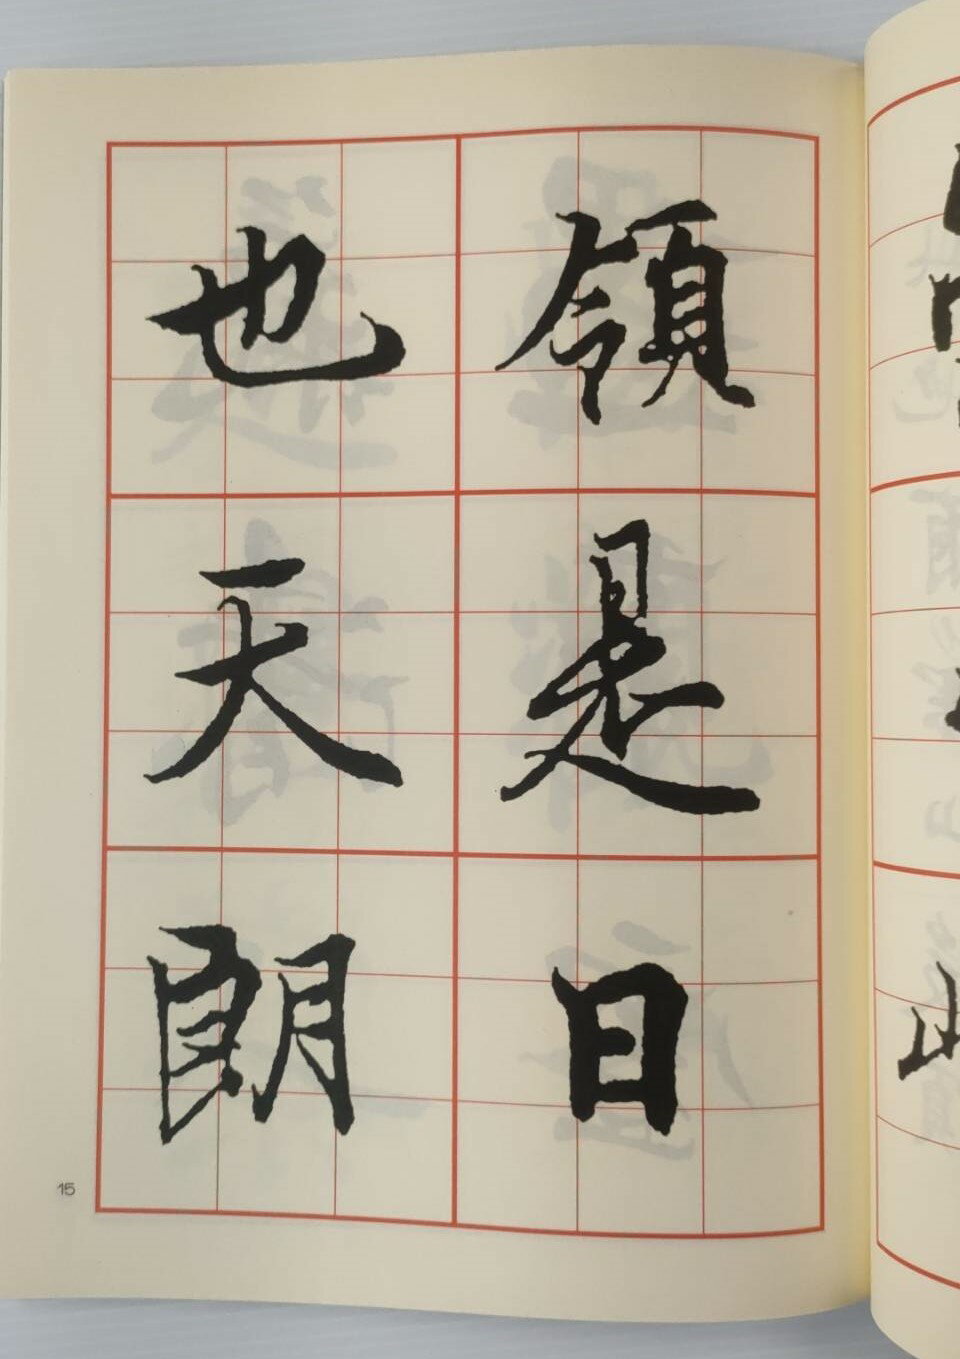 領是日
也天朗
15